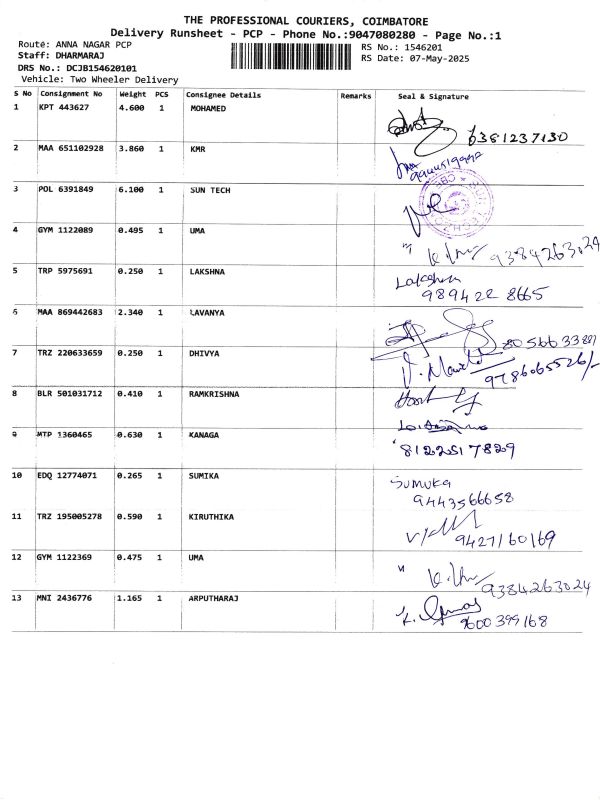 THE PROFESSIONAL COURIERS, COIMBATORE
Delivery Runsheet - PCP - Phone No.:9047080280 - Page No.:1
Route: ANNA NAGAR PCP
RS No.: 1546201
Staff: DHARMARAJ
RS Date: 07-May-2025
DRS No.: DCJB154620101
Vehicle: Two Wheeler Delivery
S No Consignment No Weight PCS Consignee Details Remarks Seal & Signature
1 KPT 443627 4.600 1 MOHAMED
6381237130
2 MAA 651102928 3.860 1 KMR
3 POL 6391849 6.100 1 SUN TECH
4 GYM 1122089 0.495 1 UMA
" 9384263024
5 TRP 5975691 0.250 1 LAKSHNA
Lakshna
989422 8665
6 MAA 869442683 2.340 1 LAVANYA
7 TRZ 220633659 0.250 1 DHIVYA
9786065526/-
8 BLR 501031712 0.410 1 RAMKRISHNA
9 MTP 1360465 0.630 1 KANAGA
8122517829
10 EDQ 12774071 0.265 1 SUMIKA
SUMUKA
9443566658
11 TRZ 195005278 0.590 1 KIRUTHIKA
9427160169
12 GYM 1122369 0.475 1 UMA
" 9384263024
13 MNI 2436776 1.165 1 ARPUTHARAJ
9600399168